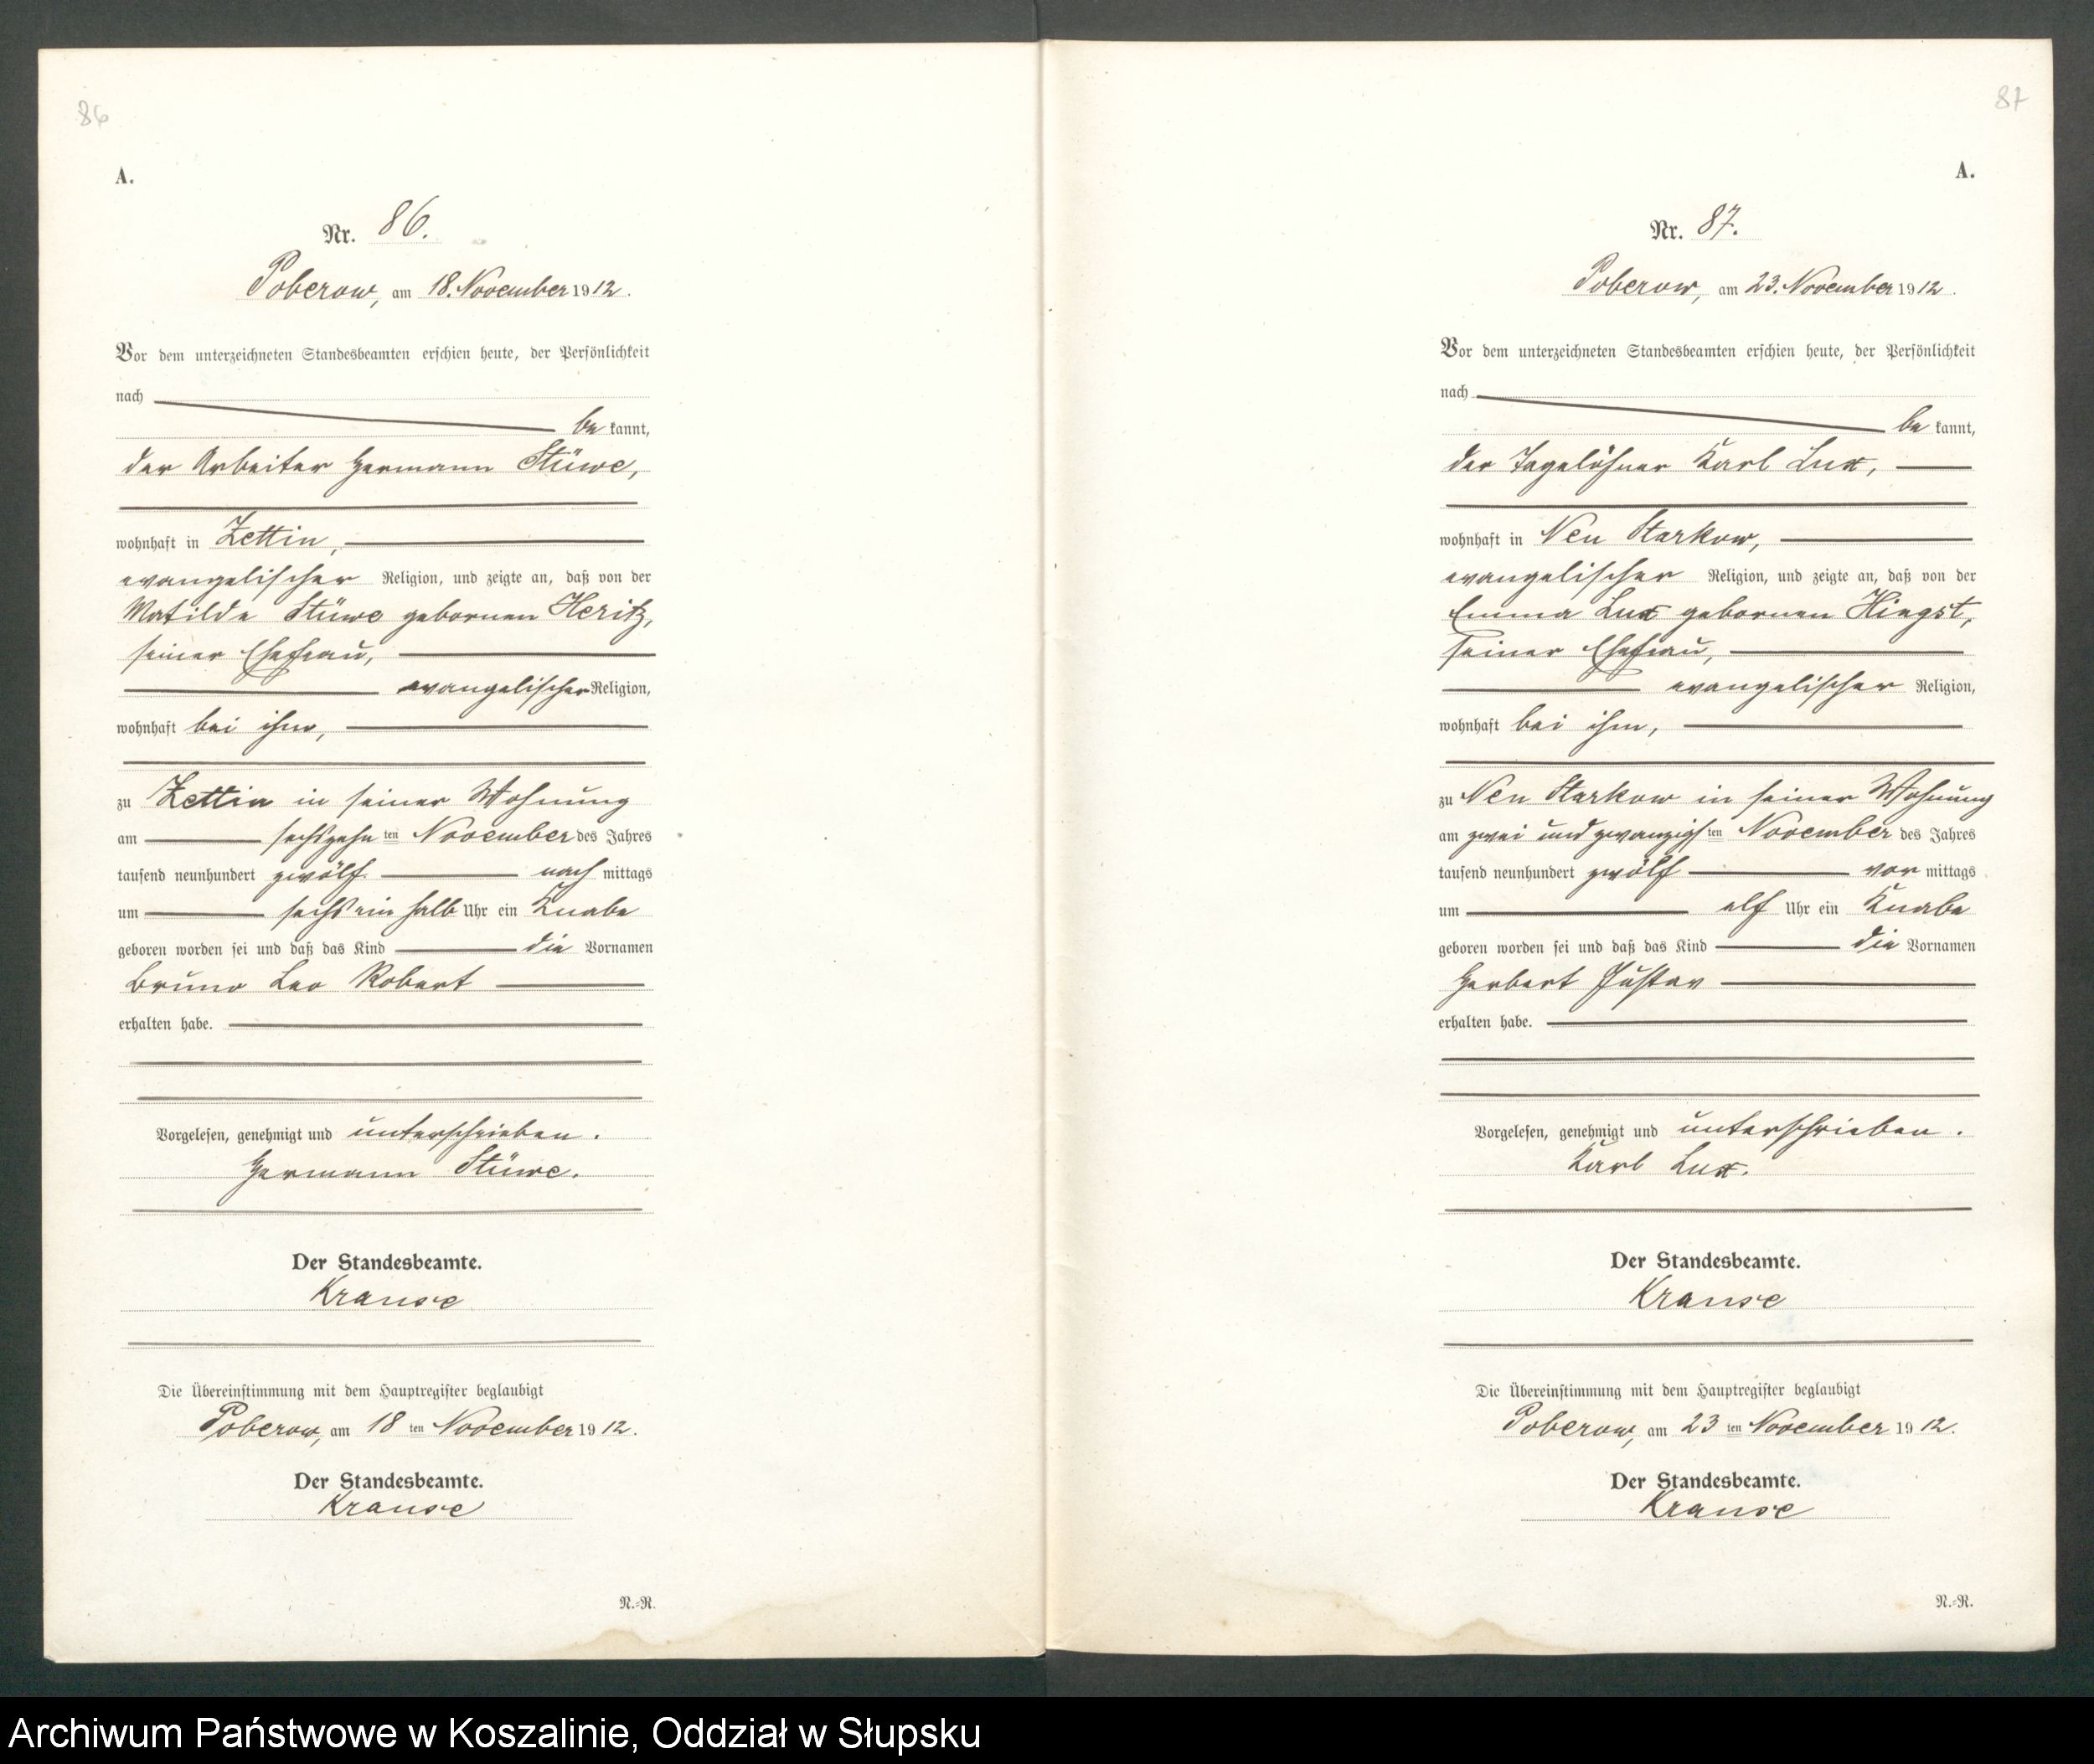 86
A.
Nr. 86.
Poberow, am 18. November 1912.
Vor dem unterzeichneten Standesbeamten erschien heute, der Persönlichkeit
nach
be kannt,
der Arbeiter Hermann Stüwe,
wohnhaft in Zettin,
evangelischer Religion, und zeigte an, daß von der
Matilde Stüwe gebornen Heritz,
seiner Ehefrau,
evangelischer Religion,
wohnhaft bei ihm,
zu Zettin in seiner Wohnung
am sechszehn ten November des Jahres
tausend neunhundert zwölf nach mittags
um sechs ein halb Uhr ein Knabe
geboren worden sei und daß das Kind die Vornamen
Bruno Leo Robert
erhalten habe.
Vorgelesen, genehmigt und unterschrieben.
Hermann Stüwe.
Der Standesbeamte.
Krause
Die Übereinstimmung mit dem Hauptregister beglaubigt
Poberow, am 18 ten November 1912.
Der Standesbeamte.
Krause
N.=R.
87
A.
Nr. 87.
Poberow, am 23. November 1912.
Vor dem unterzeichneten Standesbeamten erschien heute, der Persönlichkeit
nach
be kannt,
der Tagelöhner Karl Lux,
wohnhaft in Neu Starkow,
evangelischer Religion, und zeigte an, daß von der
Emma Lux gebornen Hingst,
seiner Ehefrau,
evangelischer Religion,
wohnhaft bei ihm,
zu Neu Starkow in seiner Wohnung
am zwei und zwanzigs ten November des Jahres
tausend neunhundert zwölf vor mittags
um elf Uhr ein Knabe
geboren worden sei und daß das Kind die Vornamen
Herbert Gustav
erhalten habe.
Vorgelesen, genehmigt und unterschrieben.
Karl Lux.
Der Standesbeamte.
Krause
Die Übereinstimmung mit dem Hauptregister beglaubigt
Poberow, am 23 ten November 1912.
Der Standesbeamte.
Krause
N.=R.
Archiwum Państwowe w Koszalinie, Oddział w Słupsku